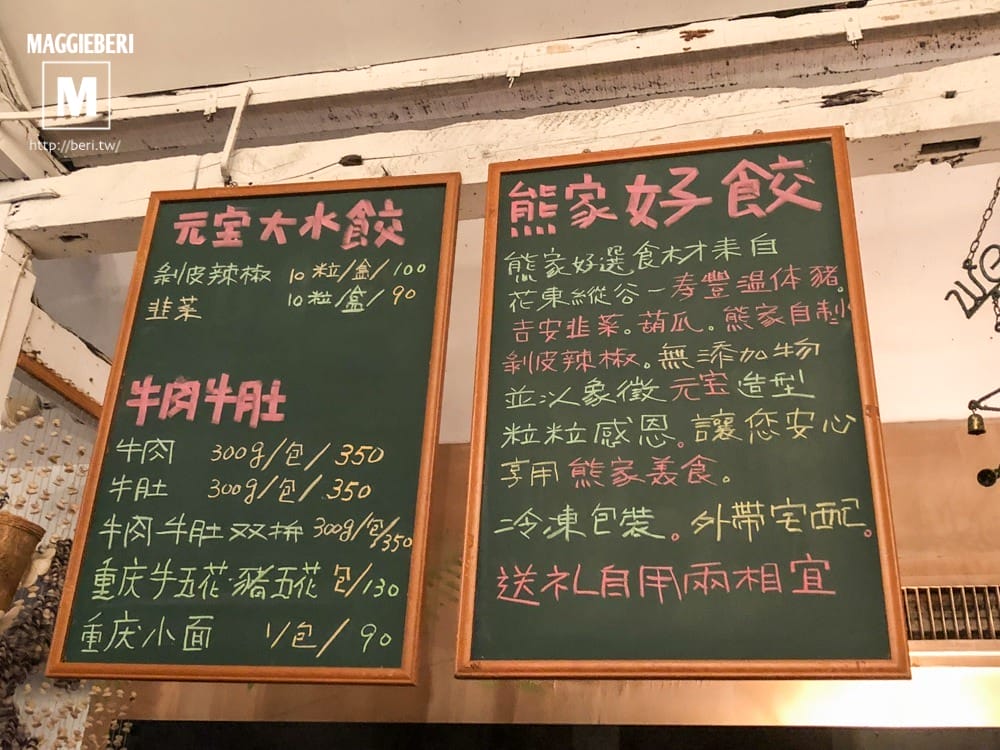 MAGGIEBERI
M
http://beri.tw/
元宝大水餃
剝皮辣椒 10粒/盒/100
韭菜 10粒/盒/90
牛肉牛肚
牛肉 300g/包/350
牛肚 300g/包/350
牛肉牛肚双拚 300g/包/350
重庆牛五花·豬五花 包/130
重庆小面 1/包/90
熊家好餃
熊家好選食材來自
花東縱谷一寿豐温体豬。
吉安韭菜。葫瓜。熊家自制
剝皮辣椒。無添加物
並以象徵元宝造型
粒粒感恩。讓您安心
享用熊家美食。
冷凍包裝。外帶宅配。
送礼自用兩相宜
we